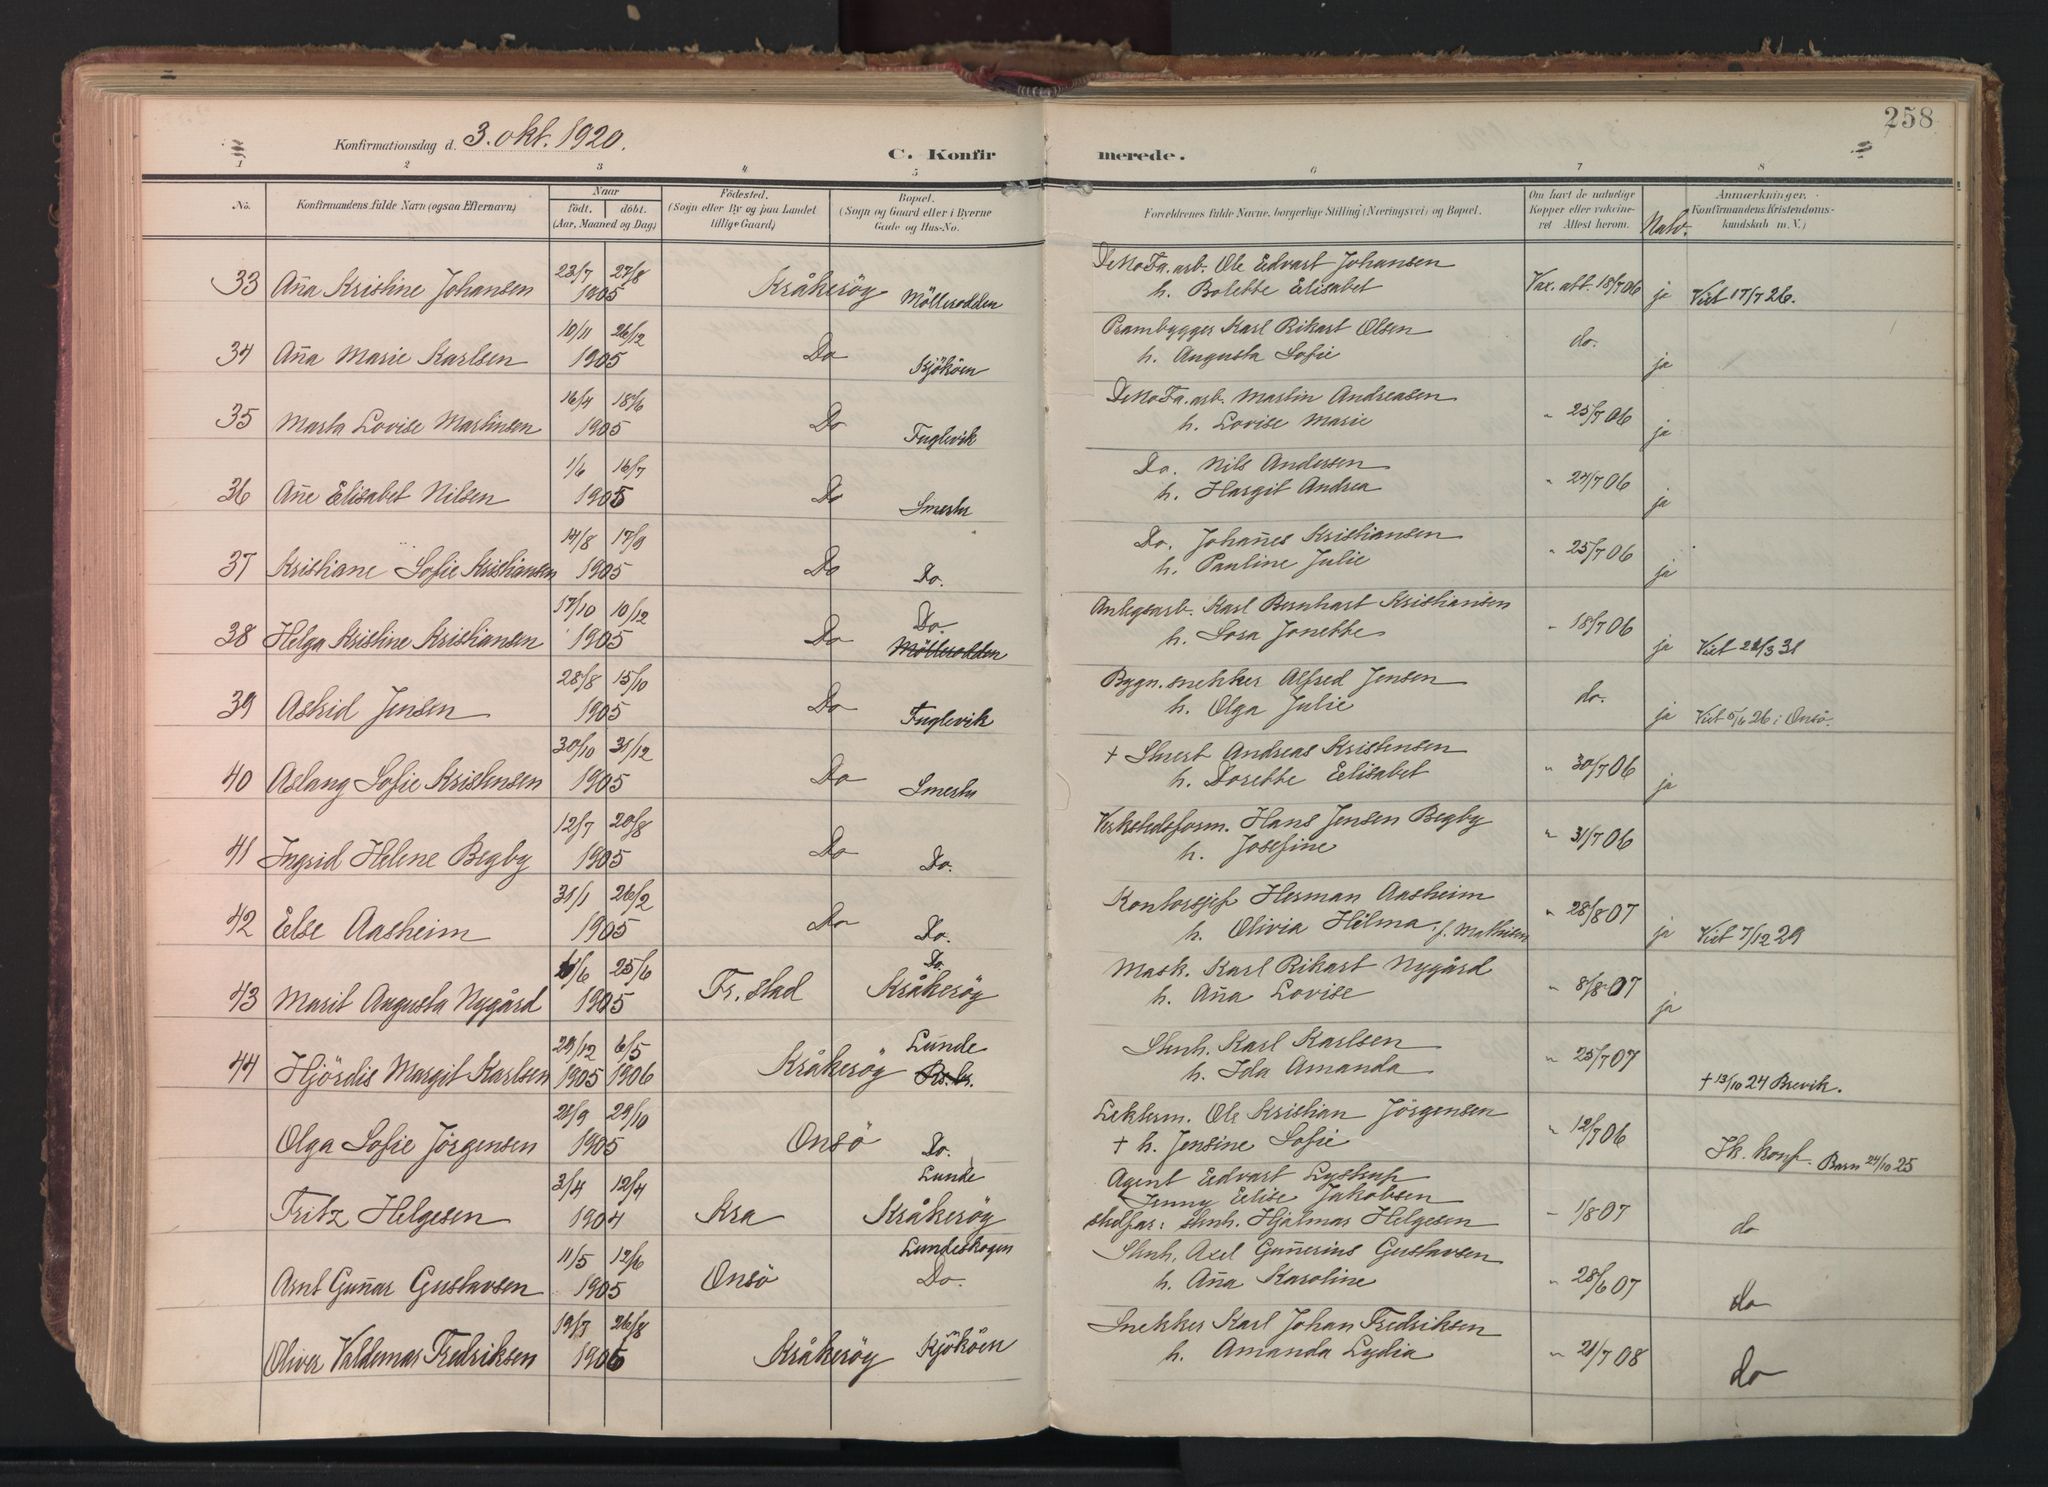 258
Konfirmationsdag d. 3. okt. 1920.
C. Konfirmerede.
1 2 3 4 5 6 7 8
No. Konfirmandens fulde Navn (ogsaa Efternavn). Naar födt. döbt. (Aar, Maaned og Dag.) Födested. (Sogn eller By og paa Landet tillige Gaard.) Bopæl. (Sogn og Gaard eller i Byerne Gade og Hus-No. Forældrenes fulde Navne, borgerlige Stilling (Næringsvei) og Bopæl. Om havt de naturlige Kopper eller vakcineret Attest herom. Natv. Anmærkninger. Konfirmandens Kristendomskundskab m. V.)
33 Aña Kristine Johansen 23/7 27/8 1905 Kråkeröy Mölleroddén DeNoFa. arb. Ole Edvart Johansen
h. Bolette Elisabet Vax. att. 18/7 06 ja Viet 17/7 26.
34 Aña Marie Karlsen 10/11 26/12 1905 Do Kjököen Prambygger Karl Rikart Olsen
h. Augusta Sofie do. ja
35 Marta Lovise Martinsen 16/4 18/6 1905 Do Fuglevik DeNoFa. arb. Martin Andreasen
h. Lovise Marie " 25/7 06 ja
36 Añe Elisabet Nilsen 1/6 16/7 1905 Do Smertu Do. Nils Andersen
h. Hargit Andrea " 24/7 06 ja
37 Kristiane Sofie Kristiansen 14/8 17/9 1905 Do Do. Do. Johañes Kristiansen
h. Pauline Julie " 25/7 06 ja
38 Helga Kristine Kristiansen 17/10 10/12 1905 Do Do. Mölleroddén Anlegsarb. Karl Bernhart Kristiansen
h. Lora Jonette " 18/7 06 ja Viet 28/3 31
39 Astrid Jensen 28/8 15/10 1905 Do Fuglevik Bygn. snekker Alfred Jensen
h. Olga Julie do. ja Viet 5/6 26 i Onsö.
40 Aslaug Sofie Kristensen 30/10 31/12 1905 Do Smertu + Stuert Andreas Kristensen
h. Dorette Elisabet " 30/7 06 ja
41 Ingrid Helene Begby 12/7 20/8 1905 Do Do. Verkstedsform. Hans Jensen Begby
h. Josefine " 31/7 06
42 Else Aasheim 31/1 26/2 1905 Do Do. Kontorsjef Herman Aasheim
h. Olivia Hilma f. Mathisen " 28/8 07 ja Viet 7/12 29
43 Marit Augusta Nygård /6 25/6 1905 Fr. stad Do Kråkeröy Mask. Karl Rikart Nygård
h. Aña Lovise " 8/8 07 ja
44 Hjördis Margit Karlsen 29/12 1905 6/5 1906 Kråkeröy Lunde Stnh. Karl Karlsen
h. Ida Amanda " 25/7 07 + 13/10 24 Brevik.
Olga Sofie Jörgensen 21/9 29/10 1905 Onsö Do. Lekterm. Ole Kristian Jörgensen
+ h. Jensine Sofie " 12/7 06 Ik. konf. Barn 24/10 25
Fritz Helgesen 3/4 12/4 1904 Kra Lunde Kråkeröy Agent Edvart Lystrup
Jenny Elise Jakobsen
stedfar: stnh. Hjalmar Helgesen - 1/8 07 do
Arnt Guñar Gustavsen 11/5 12/6 1905 Onsö Lundeskogen Do. Stnh. Axel Guñerius Gustavsen
h. Aña Karoline " 28/6 07 do
Oliver Valdemar Fredriksen 19/7 26/8 1906 Kråkeröy Kjököen Snekker Karl Johan Fredriksen
h. Amanda Lydia " 21/7 08 do